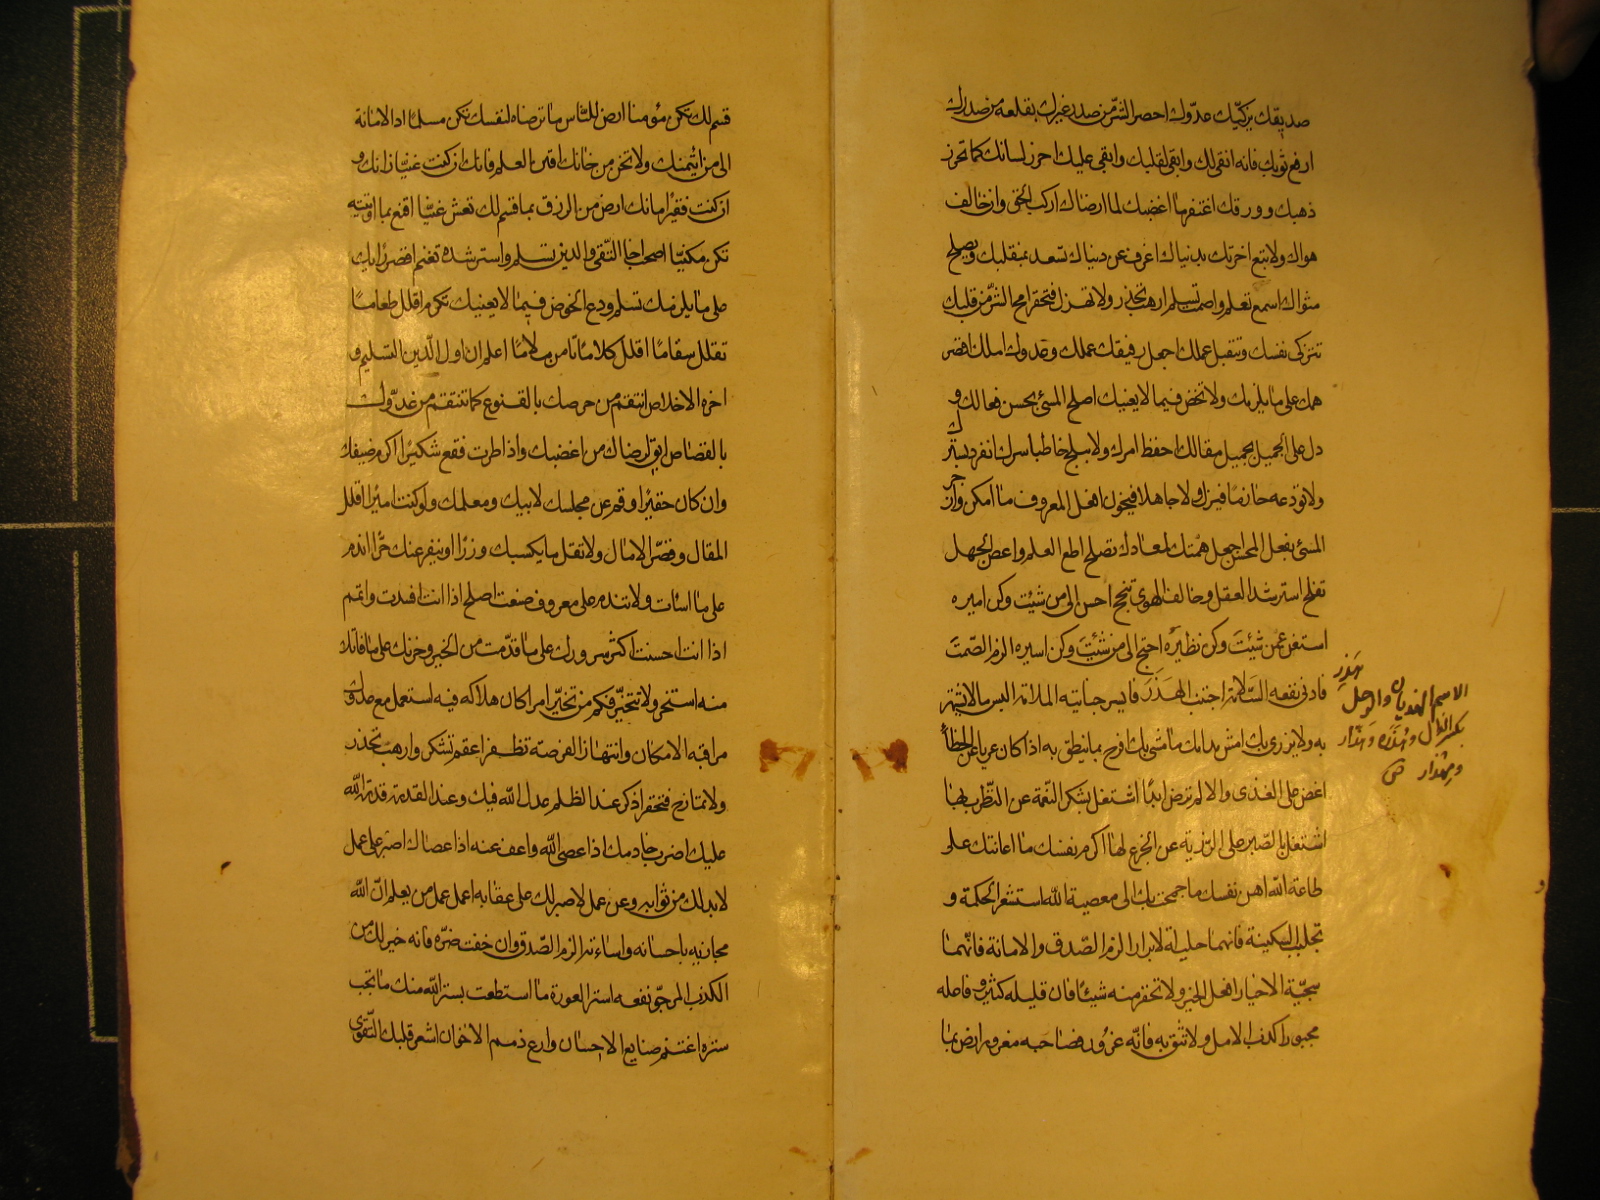 صديقك يزكيك عدوك احصد الشر من صدر غيرك بقلعه من صدرك
ارفع ثوبك فانه انقى لك واتقى لقلبك وابقى عليك احرز لسانك كما تحرز
ذهبك وورقك اغتفر ما اغضبك لما ارضاك اركب الحق وان خالف
هواك ولا تبع اخرتك بدنياك اعزف عن دنياك تسعد بمنقلبك ويصلح
مثواك اسمع تعلم واصمت تسلم ارهب تحذر ولا تهزل فتحقر امح الشر من قلبك
تتزكى نفسك وتتقبل عملك اجعل رفيقك عملك وعدوك املك اقصر
همك على ما يلزمك ولا تخض فيما لا يعنيك اصلح المسئ بحسن فعالك و
دل على الجميل بجميل مقالك احفظ امرك ولا تنكح خاطبا سرك انفرد بسرك
ولا تودعه حازما فيزل ولا جاهلا فيخون افعل المعروف ما امكن وازجر
المسئ بفعل المحسن اجعل همتك لمعادك تصلح اطع العلم واعص الجهل
تفلح استرشد العقل وخالف الهوى تنجح احسن الى من شئت وكن اميره
استغن عمن شئت وكن نظيره احتج الى من شئت وكن اسيره الزم الصمت
فادنى نفعه السلامة اجتنب الهذر فايسر جنايته الملامة البس ما لا تشتهر
به ولا يزرى بك امش بدائك ما مشى بك افرح بما تنطق به اذا كان عريا عن الخطأ
اغض على القذى والا لم ترض ابدا اشتغل بشكر النعمة عن التطرب بها
اشتغل بالصبر على الرزية عن الجزع لها اكرم نفسك ما اعانتك على
طاعة الله اهن نفسك ما جمحت بك الى معصية الله استشعر الحكمة و
تجلبب السكينة فانهما حلية الابرار الزم الصدق والامانة فانهما
سجية الاخيار افعل الخير ولا تحقر منه شيئا فان قليله كثير وفاعله
محبور اكذب الامل ولا تثق به فانه غرور وصاحبه مغرور ارض بما
هذر
الاسم الهذيان والرجل
بكسر الذال وهذرة وهذار
ومهذار ص
قسم لك تكن مؤمنا ارض للناس ما ترضاه لنفسك تكن مسلما اد الامانة
الى من ائتمنك ولا تخن من خانك اقتن العلم فانك ان كنت غنيا زانك و
ان كنت فقيرا مانك ارض من الرزق بما قسم لك تعش غنيا اقنع بما اوتيته
تكن مكفيا اصحب اخا التقى والدين تسلم واسترشده تغنم اقصر رايك
على ما يلزمك تسلم ودع الخوض فيما لا يعنيك تكرم اقلل طعاما
تقلل سقاما اقلل كلاما تامن ملاما اعلم ان اول الدين التسليم و
اخره الاخلاص انتقم من حرصك بالقنوع كما تنتقم من عدوك
بالقصاص ابق لرضاك من غضبك واذا طرت فقع شكيرا اكرم ضيفك
وان كان حقيرا وقم عن مجلسك لابيك ومعلمك ولو كنت اميرا اقلل
المقال وقصر الامال ولا تقل ما يكسبك وزرا او ينفر عنك حرا اندم
على ما اسأت ولا تندم على معروف صنعت اصلح اذا انت افسدت واتمم
اذا انت احسنت اكثر سرورك على ما قدمت من الخير وحزنك على ما فاتك
منه استخر ولا تتخير فكم من تخير امرا كان هلاكه فيه استعمل مع عدوك
مراقبة الامكان وانتهاز الفرصة تظفر اعقم تشكر وارهب تحذر
ولا تمازح فتحقر اذكر عند الظلم عدل الله فيك وعند القدرة قدرة الله
عليك اضرب خادمك اذا عصى الله واعف عنه اذا عصاك اصبر على عمل
لا بد لك من ثوابه وعن عمل لا صبر لك على عقابه اعمل عمل من يعلم ان الله
مجازيه باحسانه واساءته الزم الصدق وان خفت ضره فانه خير لك من
الكذب المرجو نفعه استر العورة ما استطعت يستر الله منك ما تحب
ستره اغتنم صنايع الاحسان وارع ذمم الاخوان اشعر قلبك التقوى